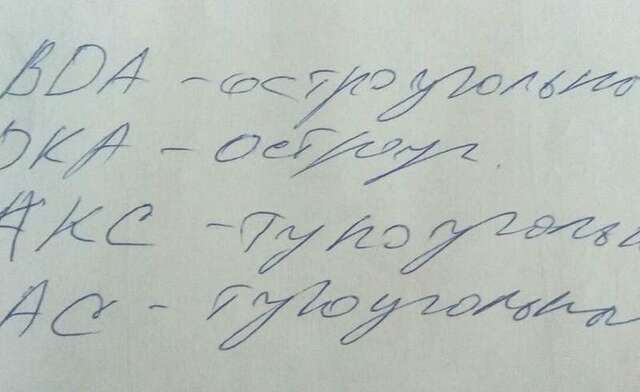 BDA - остроугольно
DKA - остроуг.
АКС - тупоуголь
АС - тупоугольны